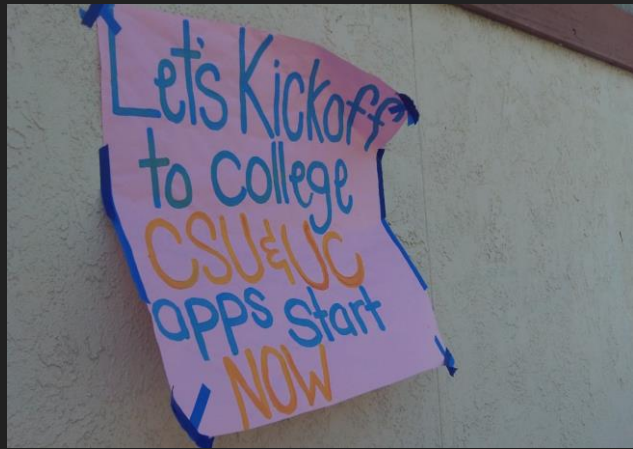 Let's Kickoff
to college
CSU & UC
apps start
NOW